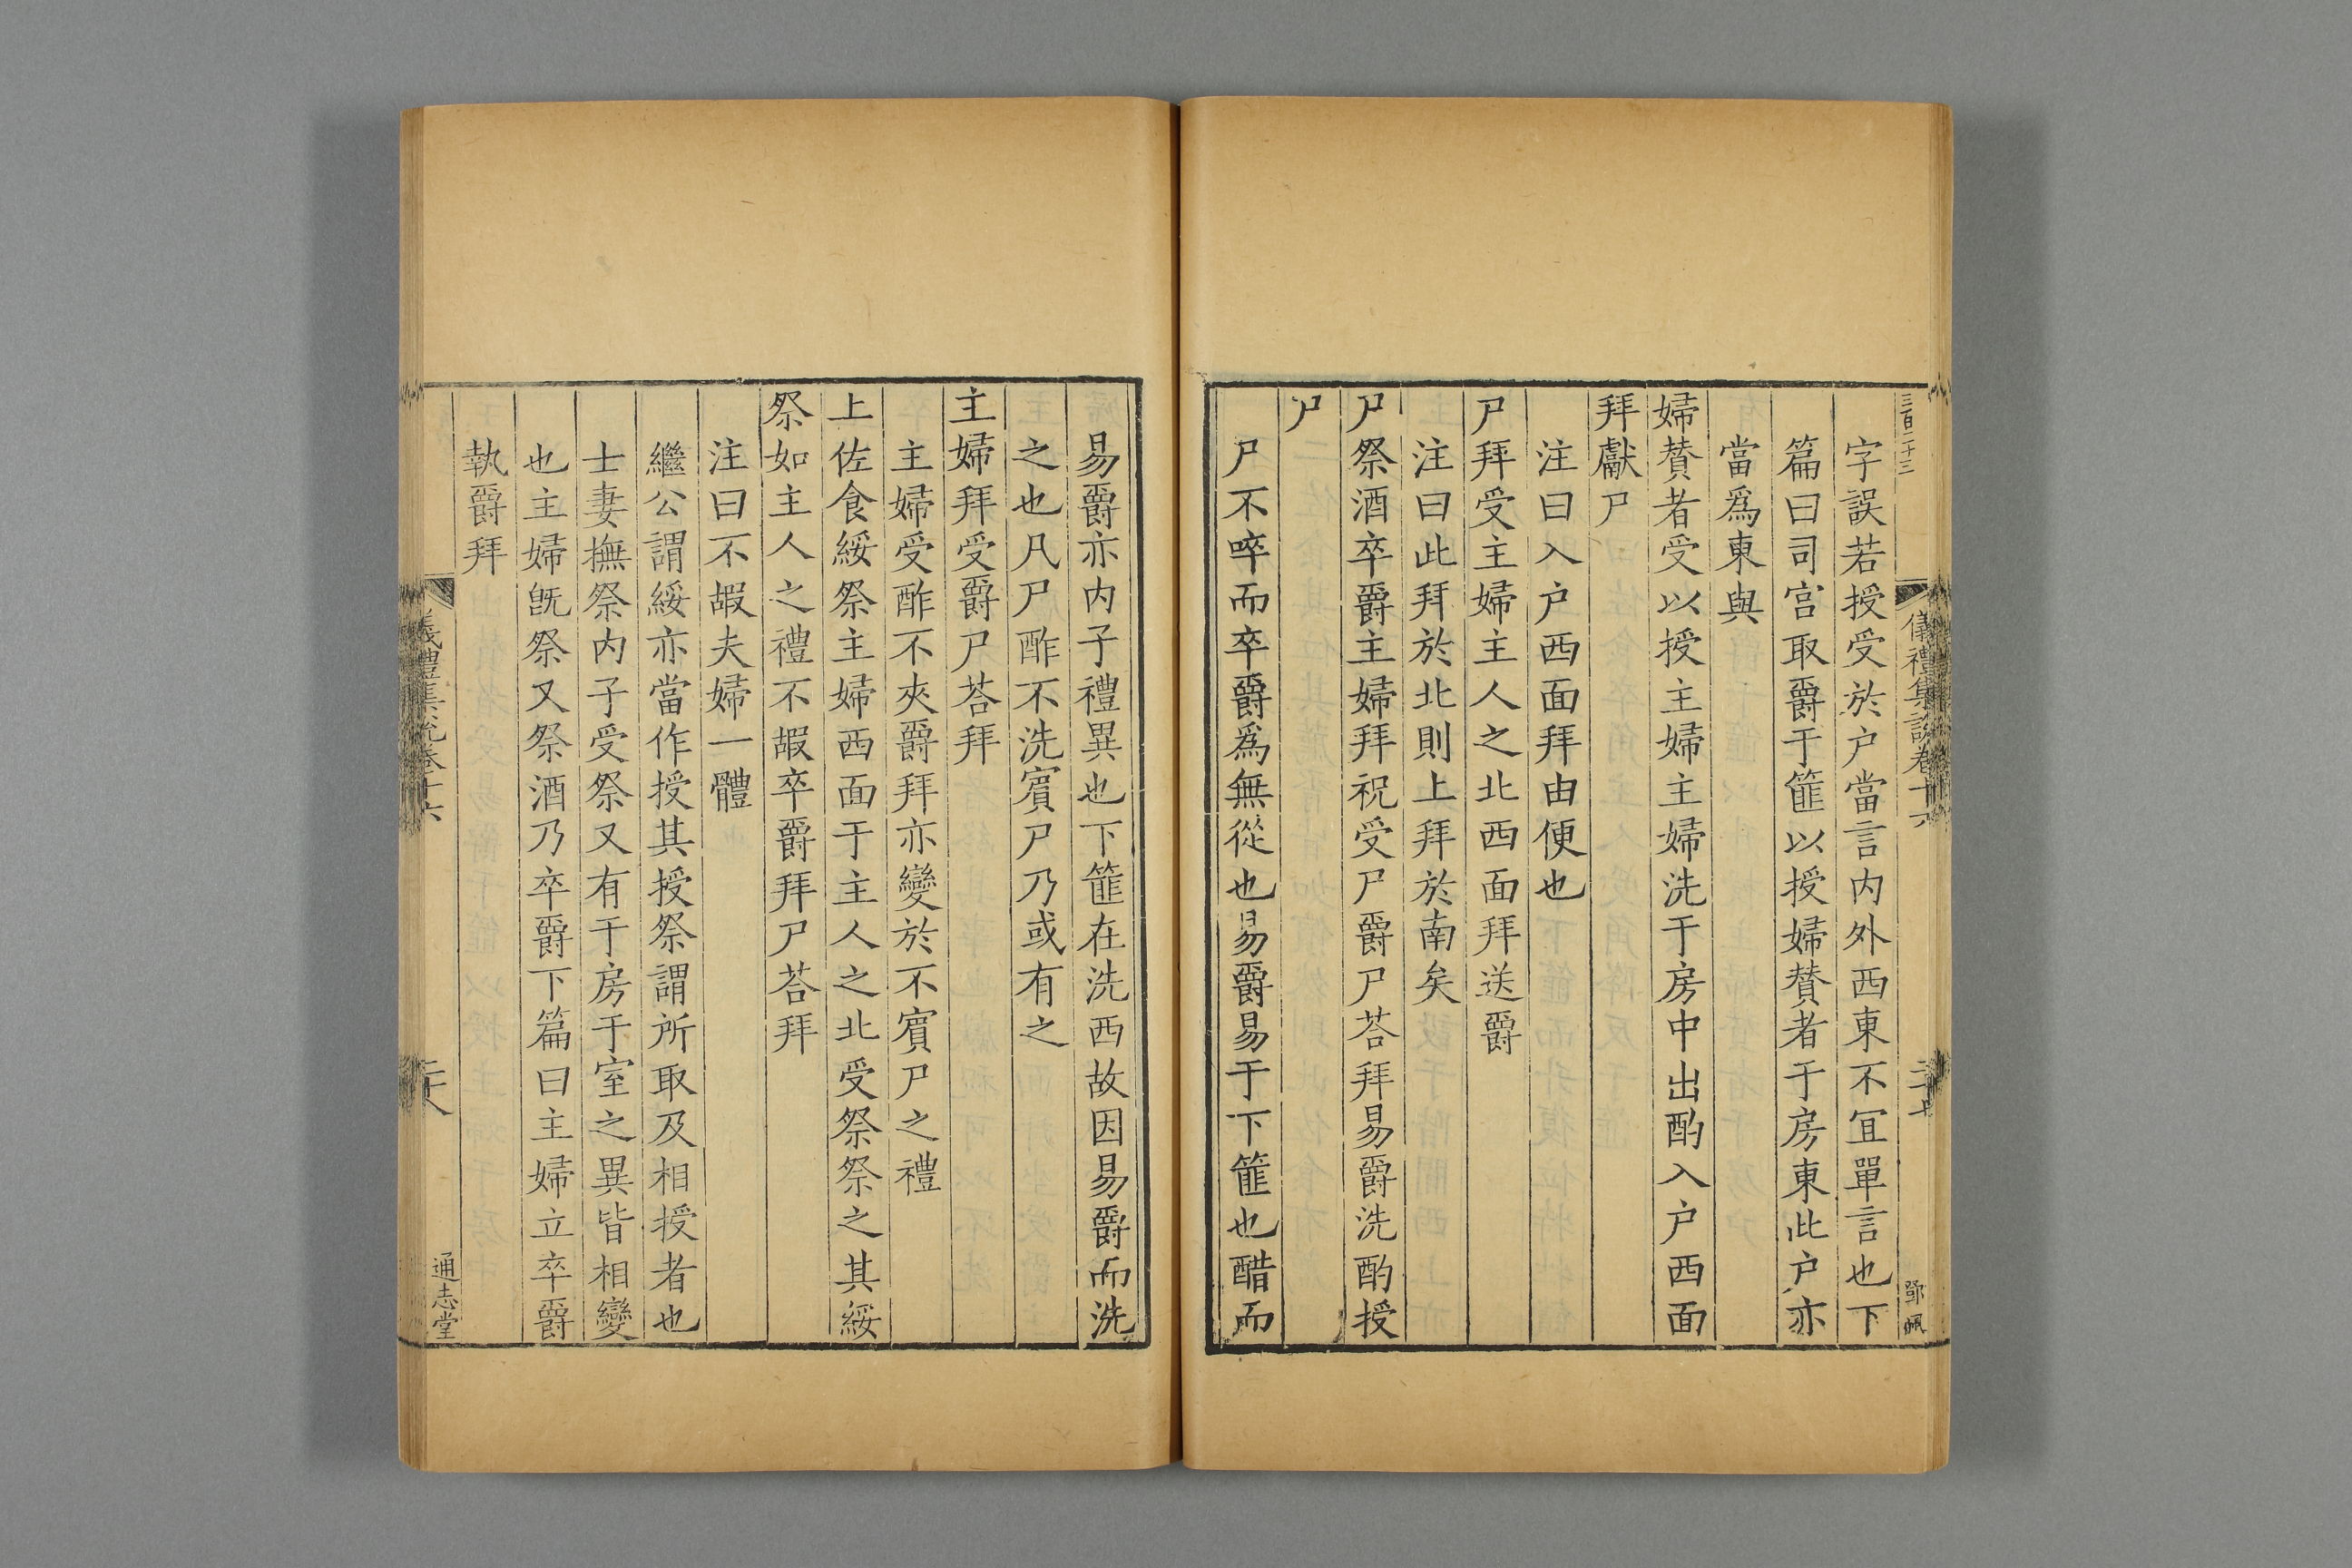 三百二十三
儀禮集說卷十六
二十七
鄧珮
字誤若授受於户當言内外西東不宜單言也下
篇曰司宫取爵于篚以授婦賛者于房東此户亦
當爲東與
婦賛者受以授主婦主婦洗于房中出酌入户西面
拜獻尸
注曰入户西面拜由便也
尸拜受主婦主人之北西面拜送爵
注曰此拜於北則上拜於南矣
尸祭酒卒爵主婦拜祝受尸爵尸荅拜易爵洗酌授
尸
尸不啐而卒爵爲無從也易爵易于下篚也醋而
易爵亦内子禮異也下篚在洗西故因易爵而洗
之也凡尸酢不洗賔尸乃或有之
主婦拜受爵尸荅拜
主婦受酢不夾爵拜亦變於不賔尸之禮
上佐食綏祭主婦西面于主人之北受祭祭之其綏
祭如主人之禮不嘏卒爵拜尸荅拜
注曰不嘏夫婦一體
繼公謂綏亦當作授其授祭謂所取及相授者也
士妻撫祭内子受祭又有于房于室之異皆相變
也主婦旣祭又祭酒乃卒爵下篇曰主婦立卒爵
執爵拜
儀禮集說卷十六
二十八
通志堂